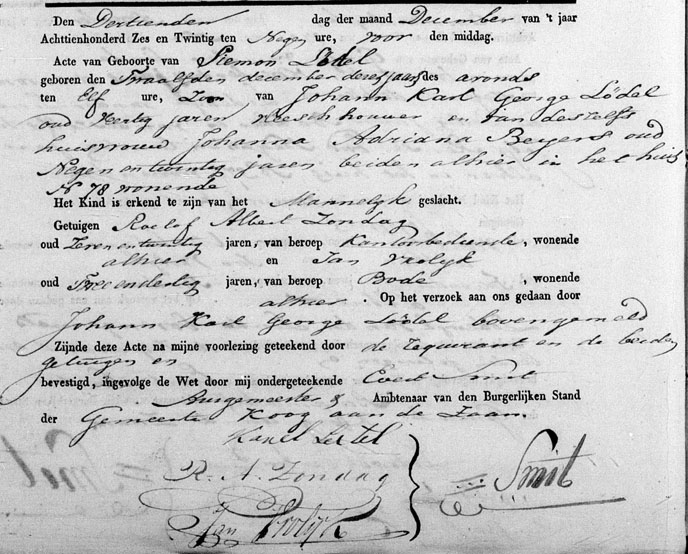 Den Dertienden dag der maand December van 't jaar
Achttienhonderd Zes en Twintig ten Negen ure, voor den middag.
Acte van Geboorte van Siemon Lödel
geboren den Twaalfden december dezes jaars des avonds
ten Elf ure, Zoon van Johann Karl George Lödel
oud Veertig jaren en van deszelfs
huisvrouw Johanna Adriana Beyers oud
Negen en twintig jaren beiden alhier in het huis
N 78 wonende
Het Kind is erkend te zijn van het Mannelyk geslacht.
Getuigen Roelof Albert Zondag
oud Zeven en twintig jaren, van beroep Kantoorbediende, wonende
alhier en Jan Vrolyk
oud Twee en dertig jaren, van beroep Bode, wonende
alhier. Op het verzoek aan ons gedaan door
Johann Karl George Lödel bovengemeld
Zijnde deze Acte na mijne voorlezing geteekend door de requirant en de beiden
getuigen en
bevestigd, ingevolge de Wet door mij ondergeteekende Evert Smit
Burgemeester & Ambtenaar van den Burgerlijken Stand
der Gemeente Koog aan de Zaan.
Karel
R. A. Zondag
Smit
Jan Vrolyk